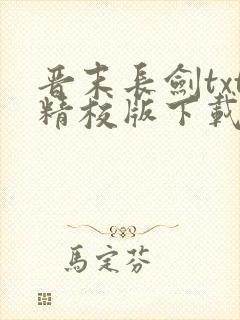 晋末長劍txt
精校版下載
馬定芬